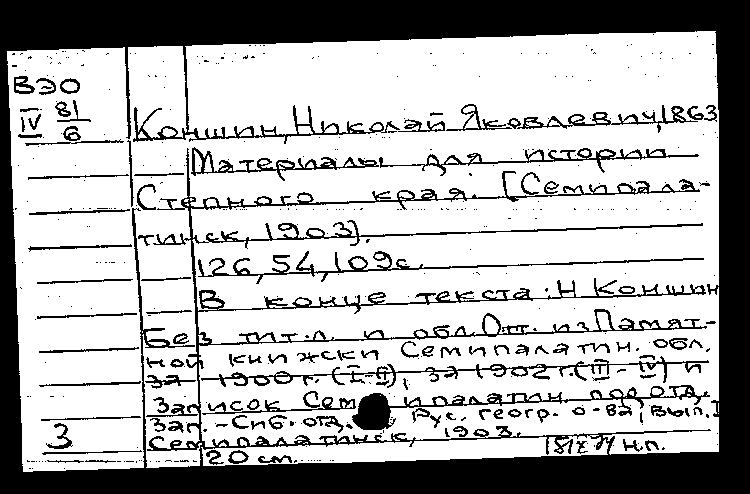 ВЭО
IV 81/6
Коншин, Николай Яковлевич, 1863
Материалы для истории
Степного края. [Семипала-
тинск, 1903].
126, 54, 109 с.
В конце текста: Н Коншин
Без тит. л. и обл. Отт. из Памят-
ной книжски Семипалатин. обл.
за 1900 г. (I-II), за 1902 г. (III-IV) и
Записок Семипалатин. подотд.
Зап.-Сиб. отд. Рус. геогр. о-ва, вып. I
Семипалатинск, 1903.
20 см.
3
н.п.